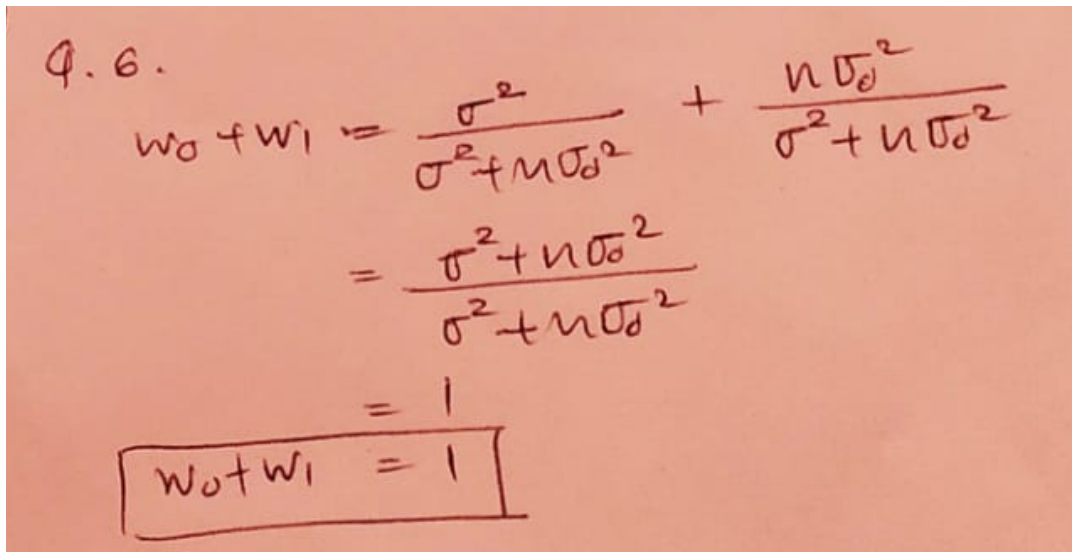 Q. 6.
w₀ + w₁ = σ² / (σ² + nσ₀²) + nσ₀² / (σ² + nσ₀²)
= (σ² + nσ₀²) / (σ² + nσ₀²)
= 1
w₀ + w₁ = 1